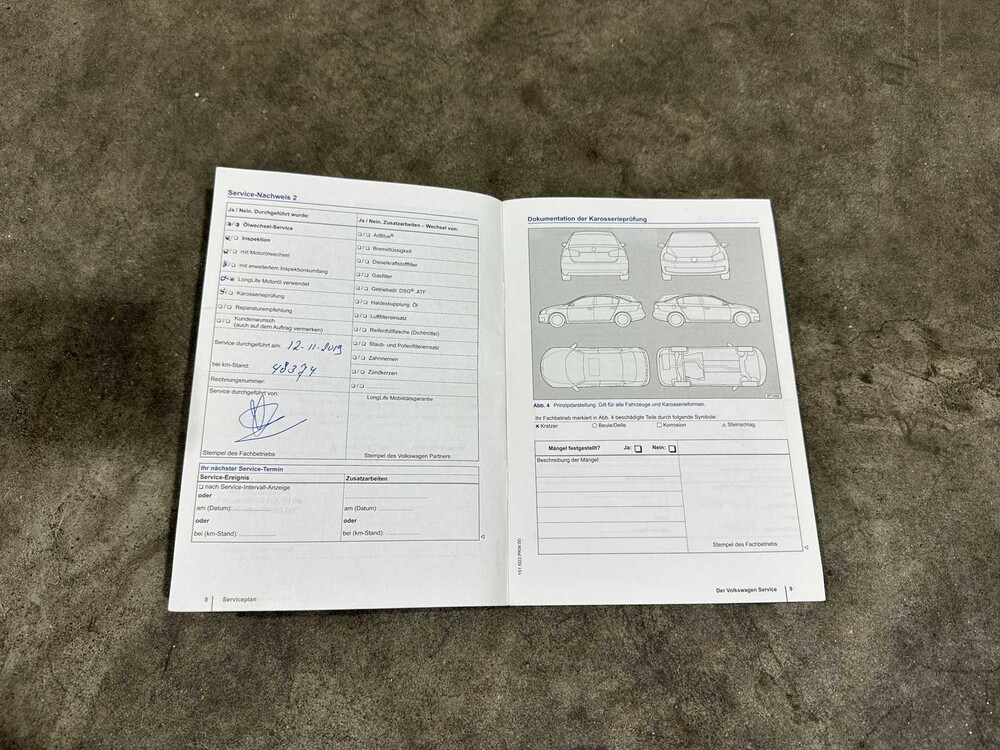 Service-Nachweis 2
Ja / Nein. Durchgeführt wurde:
Ölwechsel-Service
Inspektion
mit Motorölwechsel
mit erweitertem Inspektionsumfang
LongLife Motoröl verwendet
Karosserieprüfung
Reparaturempfehlung
Kundenwunsch
(auch auf dem Auftrag vermerken)
Service durchgeführt am: 12-11-2019
bei km-Stand: 48374
Rechnungsnummer:
Service durchgeführt von:
Stempel des Fachbetriebs
Ja / Nein. Zusatzarbeiten – Wechsel von:
AdBlue®
Bremsflüssigkeit
Dieselkraftstofffilter
Gasfilter
Getriebeöl: DSG®, ATF
Haldexkupplung: Öl
Luftfiltereinsatz
Reifenfüllflasche (Dichtmittel)
Staub- und Pollenfiltereinsatz
Zahnriemen
Zündkerzen
LongLife Mobilitätsgarantie
Stempel des Volkswagen Partners
Ihr nächster Service-Termin
Service-Ereignis
Zusatzarbeiten
nach Service-Intervall-Anzeige
oder
am (Datum):
am (Datum):
oder
oder
bei (km-Stand):
bei (km-Stand):
8 Serviceplan
Dokumentation der Karosserieprüfung
Abb. 4 Prinzipdarstellung. Gilt für alle Fahrzeuge und Karosserieformen.
Ihr Fachbetrieb markiert in Abb. 4 beschädigte Teile durch folgende Symbole:
× Kratzer ○ Beule/Delle □ Korrosion △ Steinschlag
Mängel festgestellt? Ja: Nein:
Beschreibung der Mängel:
Stempel des Fachbetriebs
Der Volkswagen Service 9